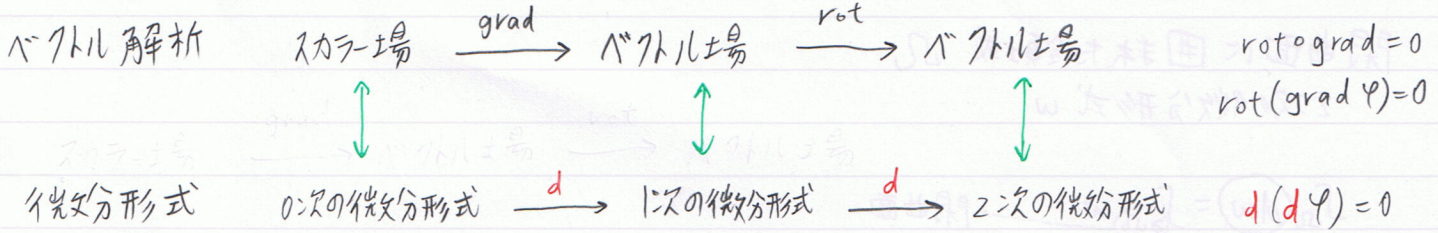 ベクトル解析 スカラー場 grad→ ベクトル場 rot→ ベクトル場 rot∘grad=0
rot(grad φ)=0
微分形式 0次の微分形式 d→ 1次の微分形式 d→ 2次の微分形式 d(dφ)=0